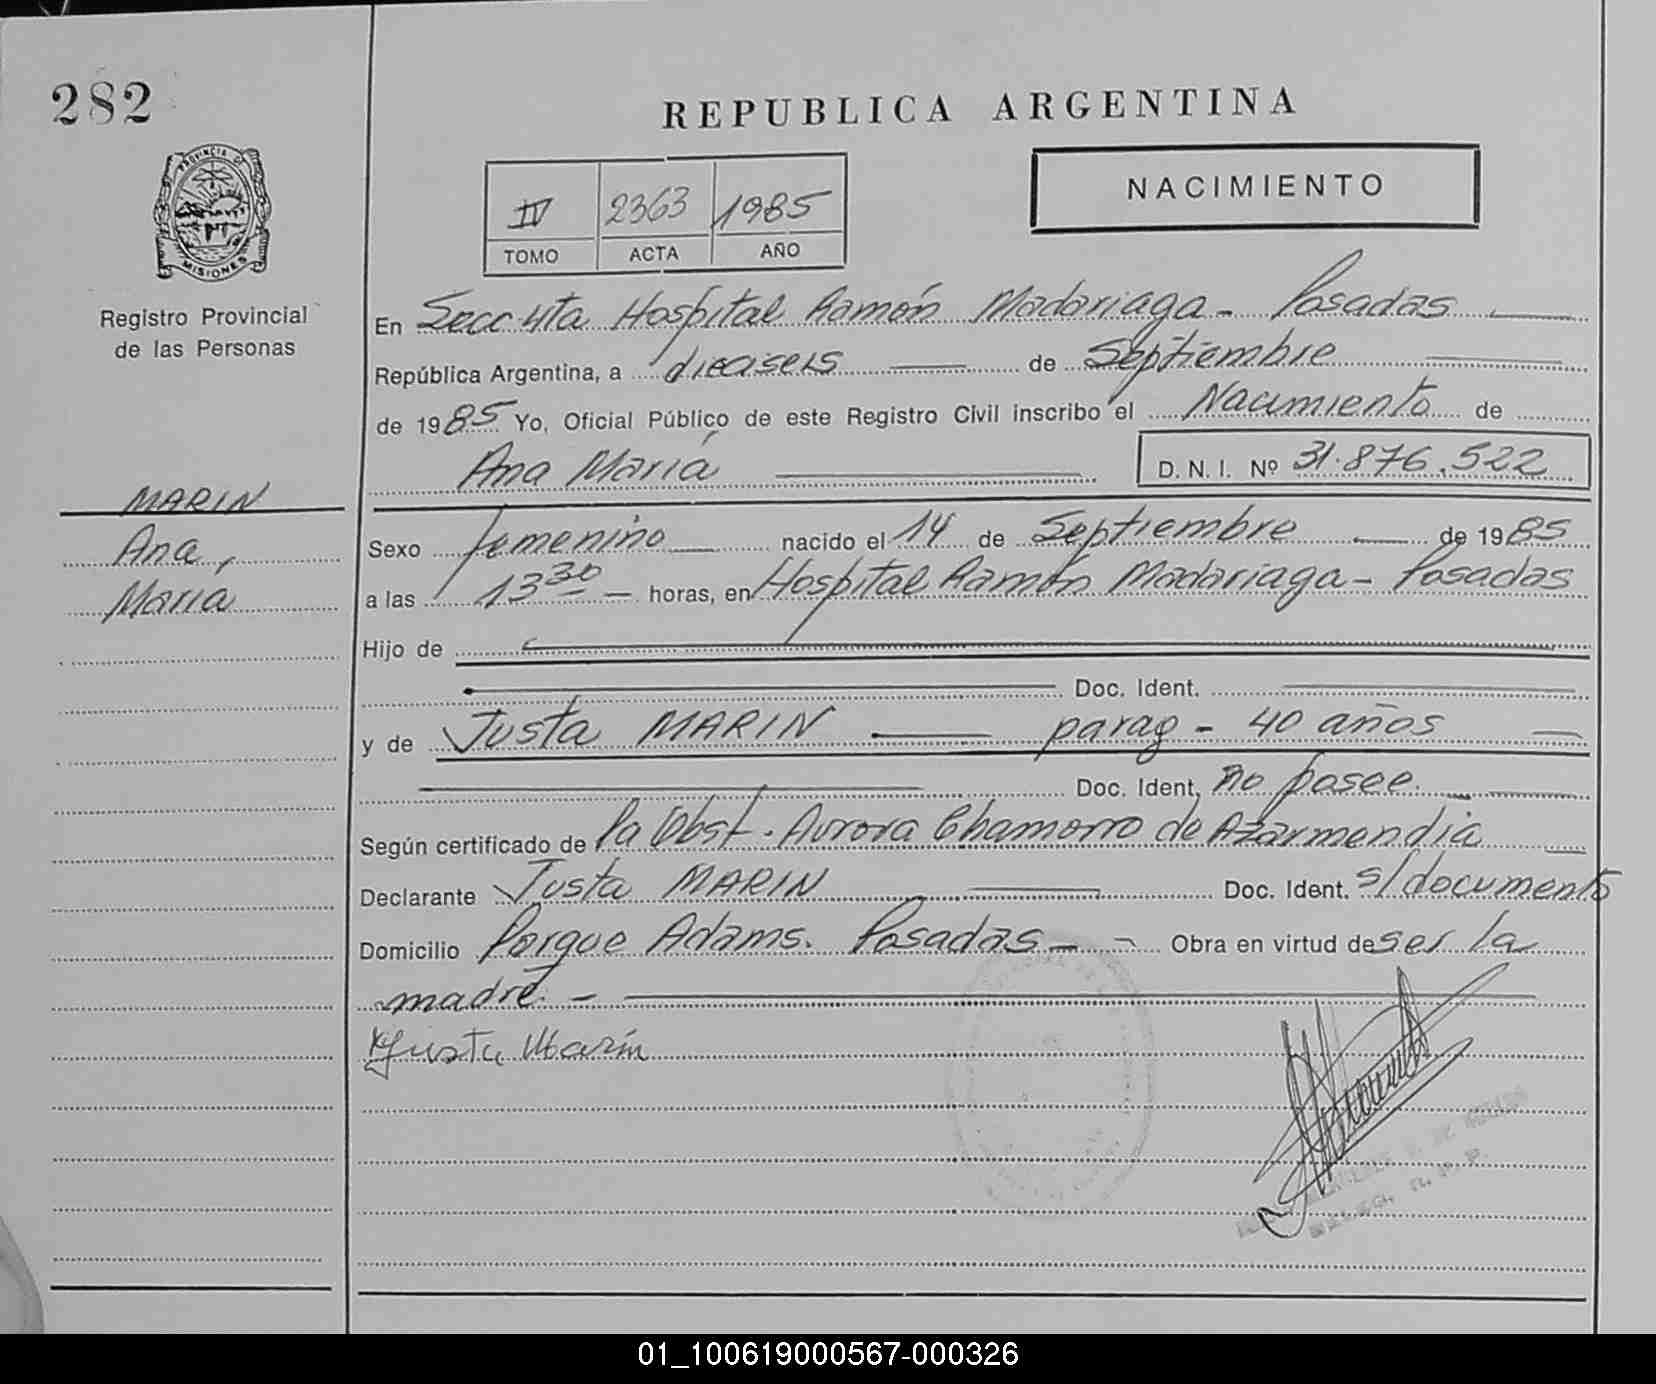 282
REPUBLICA ARGENTINA
PROVINCIA DE
MISIONES
Registro Provincial
de las Personas
IV 2363 1985
TOMO ACTA AÑO
NACIMIENTO
En Secc 4ta Hospital Ramón Madariaga - Posadas
República Argentina, a dieciseis de Septiembre
de 1985 Yo, Oficial Público de este Registro Civil inscribo el Nacimiento de
Ana María D. N. I. Nº 31.876.522
MARIN
Ana,
María
Sexo femenino nacido el 14 de Septiembre de 1985
a las 13 30 horas, en Hospital Ramón Madariaga - Posadas
Hijo de
Doc. Ident.
y de Justa MARIN parag - 40 años
Doc. Ident. no posee.
Según certificado de la Obst. Aurora Chamorro de Azarmendia
Declarante Justa MARIN Doc. Ident. s/documento
Domicilio Parque Adams. Posadas - Obra en virtud de ser la
madre. -
Justa Marin
01_100619000567-000326